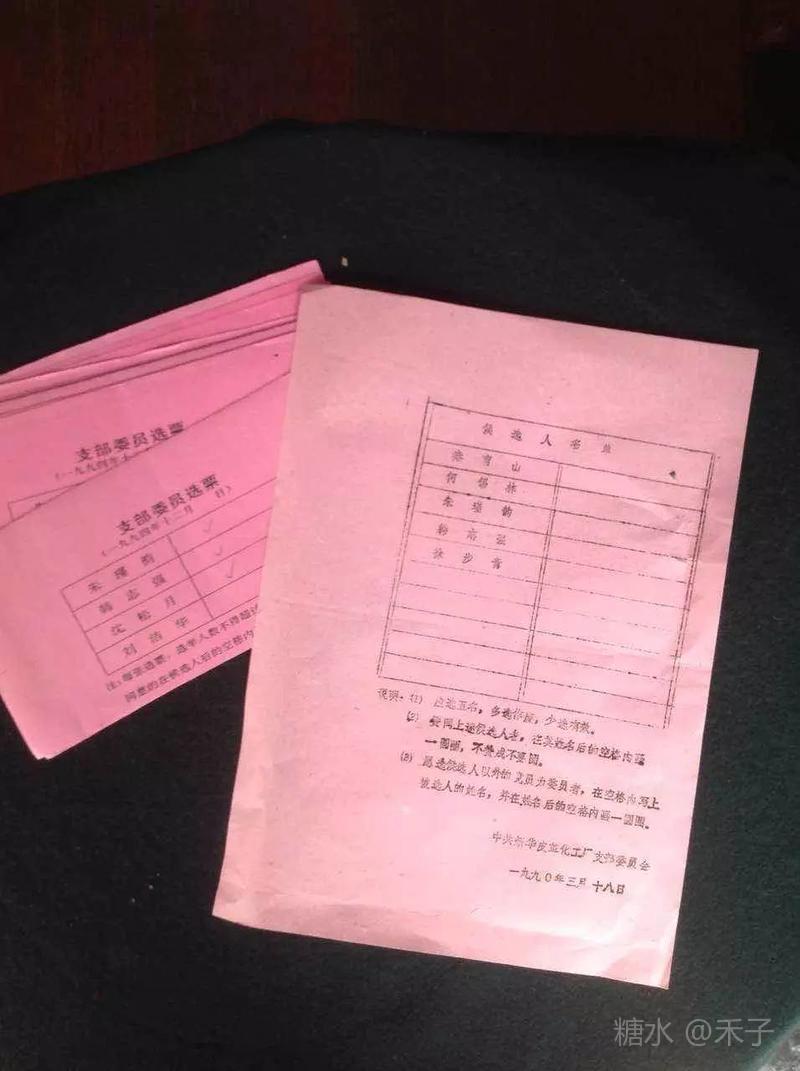 支部委员选票
(一九九四年十二
支部委员选票
(一九九四年十二月 日)
朱瑾韵 ✓
韩志强 ✓
沈松月 ✓
刘洁华
注:每张选票,选举人数不得超过
同意的在候选人后的空格内
候选人名单
山
何锡林
朱瑾韵
强
徐步青
说明:(1) 应选五名,多选作废,少选有效。
(2) 赞同上述候选人者,在其姓名后的空格内画
一圆圈,不赞成不要圈。
(3) 愿选候选人以外的党员为委员者,在空格内写上
被选人的姓名,并在姓名后的空格内画一圆圈。
中共新华 化工厂支部委员会
一九九〇年三月十八日
糖水 @禾子